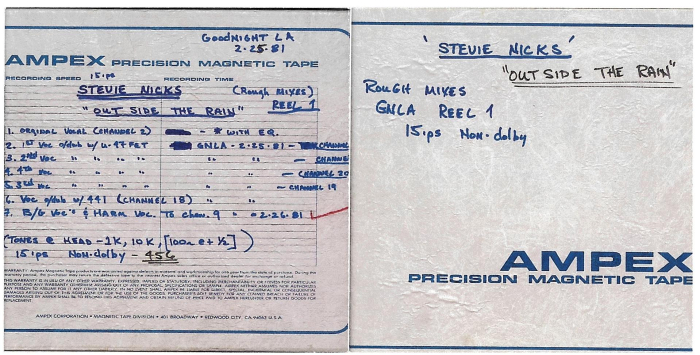 GOODNIGHT LA
2.25.81
AMPEX PRECISION MAGNETIC TAPE
RECORDING SPEED 15.ips RECORDING TIME
STEVIE NICKS (ROUGH MIXES)
"OUT SIDE THE RAIN" REEL 1
1. ORGINAL VOCAL (CHANNEL 2) - * WITH EQ.
2. 1ST VOC o/dub w/ U-47 FET GNLA - 2.25.81 - CHANNEL
3. 2nd VOC " " " " " " - CHANNEL
4. 4th VOC " " " " " " - CHANNEL 20
5. 3rd VOC " " " " " " - CHANNEL 19
6. VOC o/dub w/ 441 (CHANNEL 18) " "
7. B/G VOC'S & HARM VOC. TO CHAN. 9 " - 2.26.81
(TONES @ HEAD - 1K, 10K, [100~ @ + ½])
15.ips NON-dolby - 456
AMPEX CORPORATION • MAGNETIC TAPE DIVISION • 401 BROADWAY • REDWOOD CITY, CA 94063 U.S.A.
'STEVIE NICKS'
"OUT SIDE THE RAIN"
ROUGH MIXES
GNLA REEL 1
15.ips NON-dolby
AMPEX
PRECISION MAGNETIC TAPE